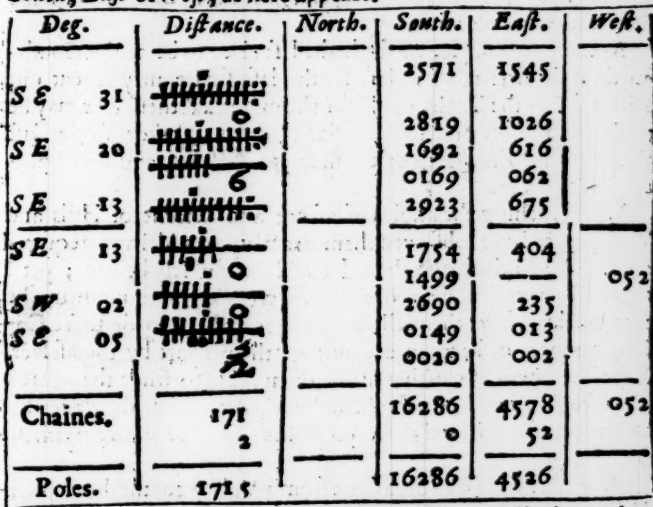 Deg. Diſtance. North. South. Eaſt. Weſt.
2571 1545
S E 31
0
2819 1026
S E 20 1692 616
6 0169 062
S E 13 2923 675
S E 13 1754 404
0 1499 — 052
S W 02 0 2690 235
S E 05 0149 013
0020 002
Chaines. 171 16286 4578 052
2 0 52
Poles. 1715 16286 4526